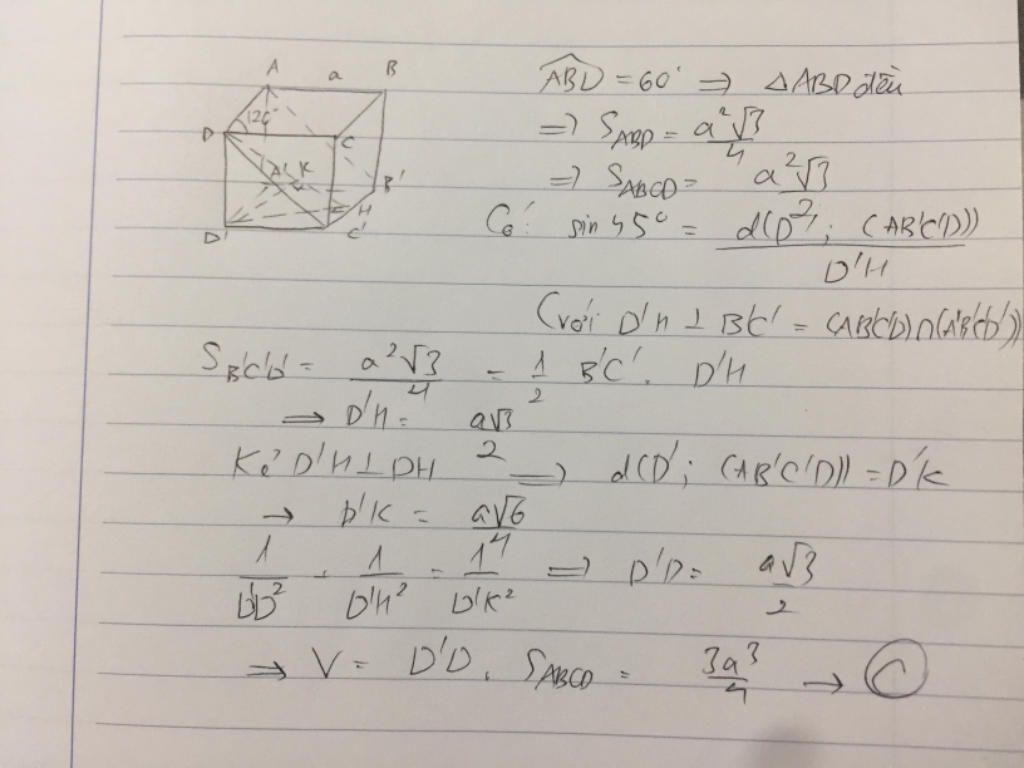 A a B
D 120 C
A' K B'
H
D' C'
ABD = 60° ⇒ △ABD đều
⇒ S_ABD = a²√3/4
⇒ S_ABCD = a²√3/2
Có: sin 45° = d(D'; (AB'C'D))/D'H
(với D'H ⊥ B'C' = (AB'C'D)∩(A'B'C'D'))
S_B'C'D' = a²√3/4 = 1/2 B'C'. D'H
⇒ D'H = a√3/2
Kẻ D'H ⊥ DH ⇒ d(D'; (AB'C'D)) = D'K
→ D'K = a√6/4
1/D'D² + 1/D'H² = 1/D'K² ⇒ D'D = a√3/2
⇒ V = D'D . S_ABCD = 3a³/4 → C